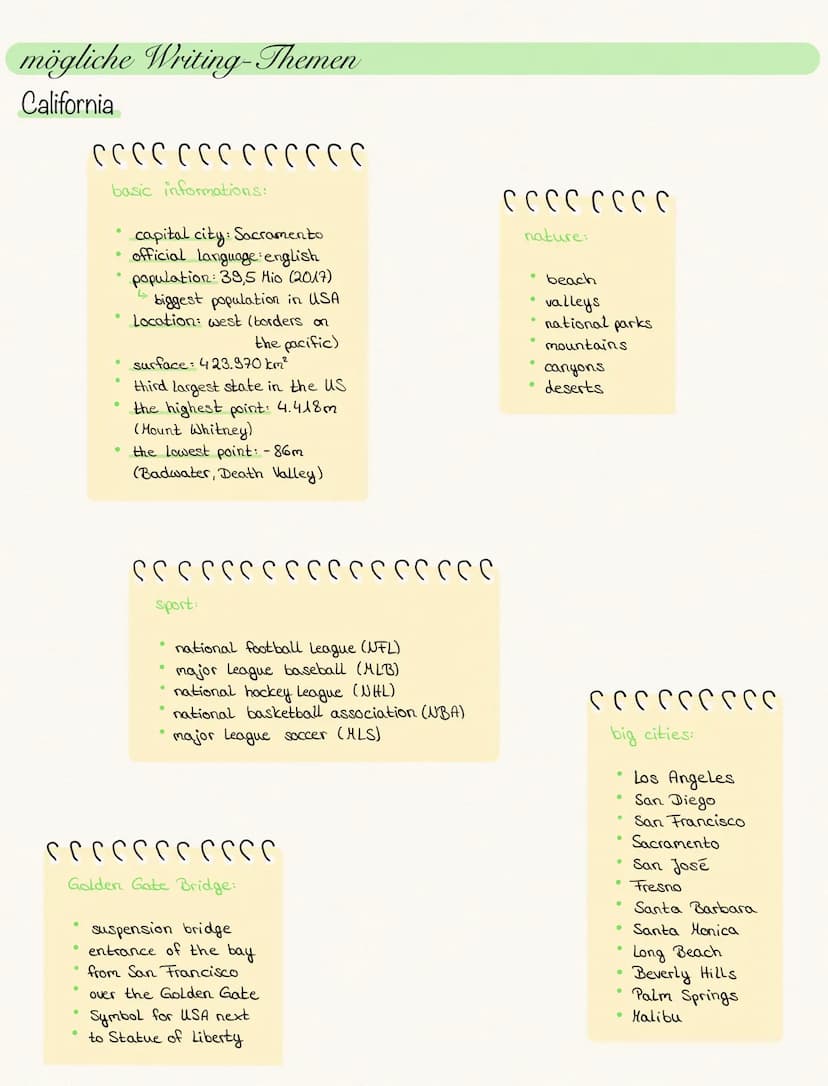 mögliche Writing-Themen
California
basic informations:
• capital city: Sacramento
• official language: english
• population: 39,5 Mio (2017)
↳ biggest population in USA
• Location: west (borders on
the pacific)
• surface: 423.970 km²
• third largest state in the US
• the highest point: 4.418m
(Mount Whitney)
• the lowest point: -86m
(Badwater, Death Valley)
nature:
• beach
• valleys
• national parks
• mountains
• canyons
• deserts
sport:
• national football League (NFL)
• major League baseball (MLB)
• national hockey League (NHL)
• national basketball association (NBA)
• major League soccer (MLS)
big cities:
• Los Angeles
• San Diego
• San Francisco
• Sacramento
• San José
• Fresno
• Santa Barbara
• Santa Monica
• Long Beach
• Beverly Hills
• Palm Springs
• Malibu
Golden Gate Bridge:
• suspension bridge
• entrance of the bay
• from San Francisco
• over the Golden Gate
• Symbol for USA next
• to Statue of Liberty